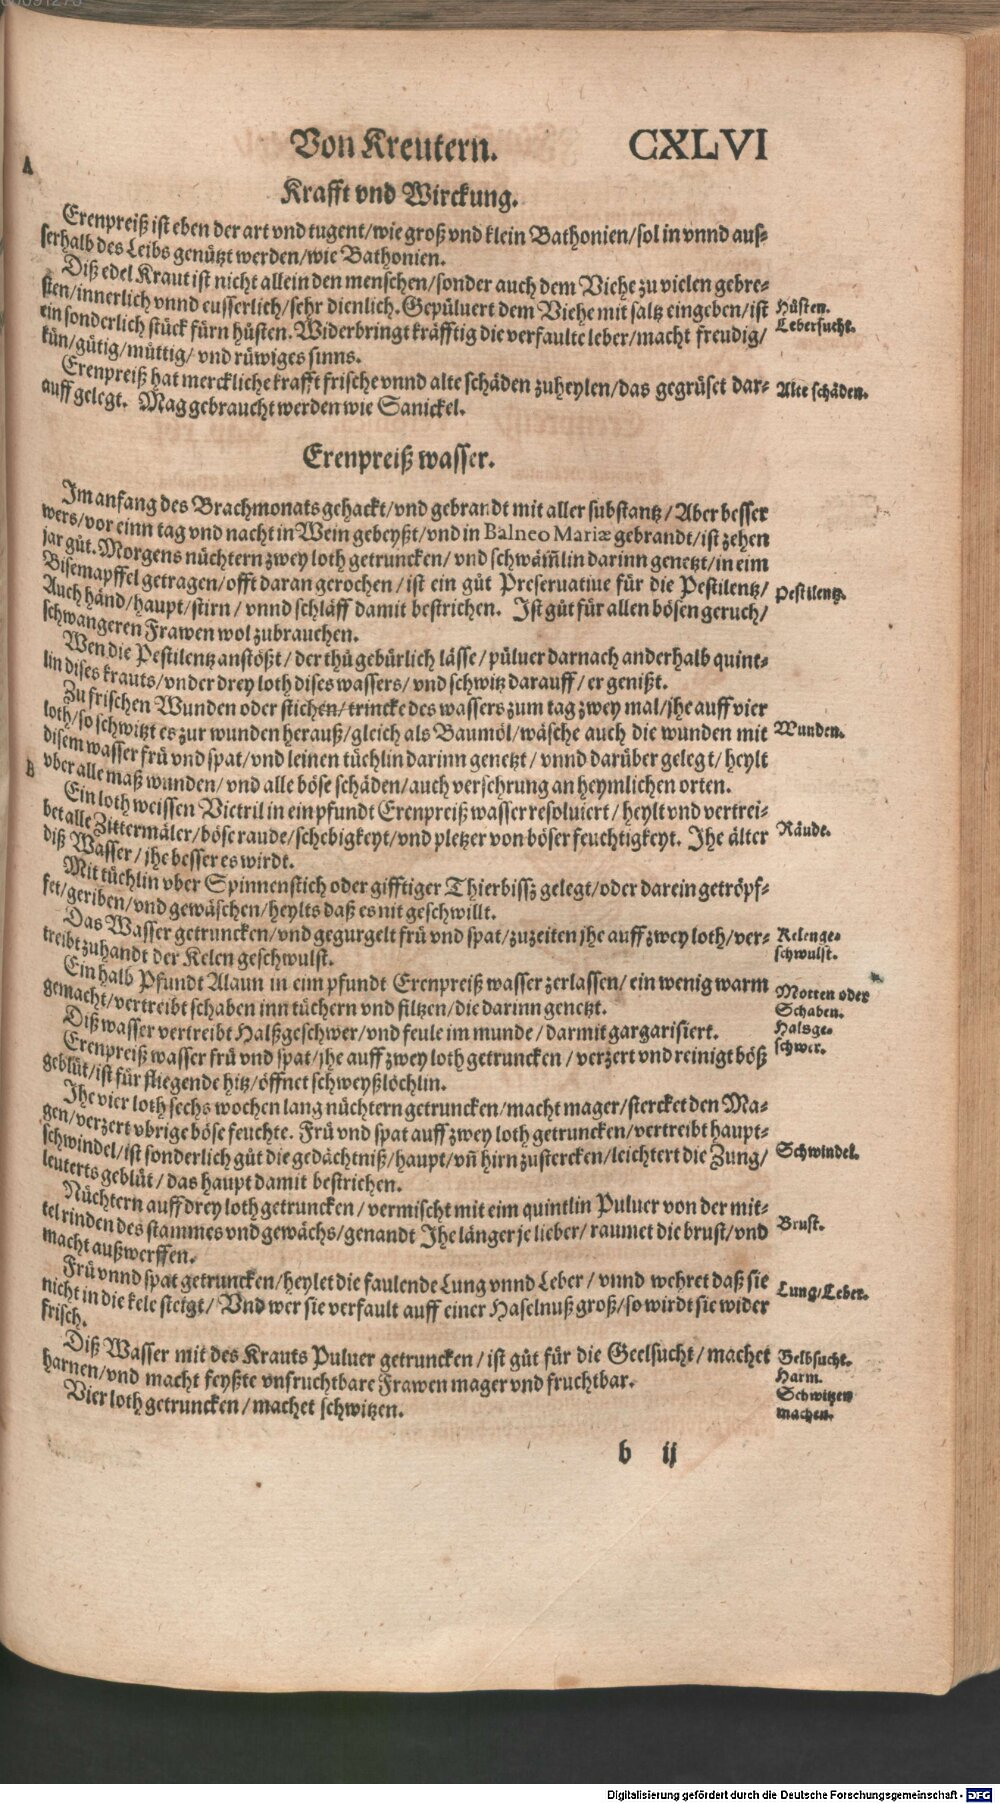 Von Kreutern. CXLVI
A
Krafft vnd Wirckung.
Erenpreiß ist eben der art vnd tugent/wie groß vnd klein Bathonien/sol in vnnd aus-
serhalb des Leibs genützt werden/wie Bathonien.
Diß edel Kraut ist nicht allein den menschen/sonder auch dem Viehe zu vielen gebre-
sten/innerlich vnnd eusserlich/sehr dienlich. Gepüluert dem Viehe mit saltz eingeben/ist
Hüsten.
ein sonderlich stück fürn hüsten. Widerbringt kräfftig die verfaulte leber/macht freudig/
Lebersucht.
kün/gütig/müttig/vnd rüwiges sinns.
Erenpreiß hat merckliche krafft frische vnnd alte schäden zuheylen/das gegrüset dar-
Alte schäden.
auff gelegt. Mag gebraucht werden wie Sanickel.
Erenpreiß wasser.
Im anfang des Brachmonats gehackt/vnd gebrandt mit aller substantz/Aber besser
wers/vor einn tag vnd nacht in Wein gebeyßt/vnd in Balneo Mariæ gebrandt/ist zehen
jar güt. Morgens nüchtern zwey loth getruncken/vnd schwäm̃lin darinn genetzt/in eim
Bisemapffel getragen/offt daran gerochen/ist ein güt Preseruatiue für die Pestilentz/
Pestilentz.
Auch händ/haupt/stirn/vnnd schläff damit bestrichen. Ist güt für allen bösen geruch/
schwangeren Frawen wol zubrauchen.
Wen die Pestilentz anstößt/der thü gebürlich lässe/püluer darnach anderhalb quint-
lin dises krauts/vnder drey loth dises wassers/vnd schwitz darauff/er genißt.
Zu frischen Wunden oder stichen/trincke des wassers zum tag zwey mal/jhe auff vier
loth/so schwitzt es zur wunden herauß/gleich als Baumöl/wäsche auch die wunden mit
Wunden.
disem wasser frü vnd spat/vnd leinen tüchlin darinn genetzt/vnnd darüber gelegt/heylt
B
vber alle maß wunden/vnd alle böse schäden/auch versehrung an heymlichen orten.
Ein loth weissen Victril in ein pfundt Erenpreiß wasser resoluiert/heylt vnd vertrei-
bet alle Zittermäler/böse raude/schebigkeyt/vnd pletzer von böser feuchtigkeyt. Jhe älter
Räude.
diß Wasser/jhe besser es wirdt.
Mit tüchlin vber Spinnenstich oder gifftiger Thierbissz gelegt/oder darein getröpf-
fet/geriben/vnd gewäschen/heylts daß es nit geschwillt.
Das Wasser getruncken/vnd gegurgelt frü vnd spat/zuzeiten jhe auff zwey loth/ver-
Kelenge-
treibt zuhandt der Kelen geschwulst.
schwulst.
Ein halb Pfundt Alaun in eim pfundt Erenpreiß wasser zerlassen/ein wenig warm
Motten oder
gemacht/vertreibt schaben inn tüchern vnd filtzen/die darinn genetzt.
Schaben.
Diß wasser vertreibt Halßgeschwer/vnd feule im munde/darmit gargarisiert.
Halsge-
schwer.
Erenpreiß wasser frü vnd spat/jhe auff zwey loth getruncken/verzert vnd reinigt böß
geblüt/ist für fliegende hitz/öffnet schweyßlöchlin.
Jhe vier loth sechs wochen lang nüchtern getruncken/macht mager/stercket den Ma-
gen/verzert vbrige böse feuchte. Frü vnd spat auff zwey loth getruncken/vertreibt haupt-
schwindel/ist sonderlich güt die gedächtniß/haupt/vñ hirn zustercken/leichtert die Zung/
Schwindel.
leuterts geblüt/das haupt damit bestrichen.
Nüchtern auff drey loth getruncken/vermischt mit eim quintlin Puluer von der mit-
tel rinden des stammes vnd gewächs/genandt Jhe länger je lieber/raumet die brust/vnd
Brust.
macht außwerffen.
Frü vnnd spat getruncken/heylet die faulende Lung vnnd Leber/vnnd wehret daß sie
Lung/Leber.
nicht in die kele steigt/Vnd wer sie verfault auff einer Haselnuß groß/so wirdt sie wider
frisch.
Diß Wasser mit des Krauts Puluer getruncken/ist güt für die Geelsucht/machet
Gelbsucht.
harnen/vnd macht feyßte vnfruchtbare Frawen mager vnd fruchtbar.
Harm.
Vier loth getruncken/machet schwitzen.
Schwitzen
machen.
b ij
Digitalisierung gefördert durch die Deutsche Forschungsgemeinschaft - DFG